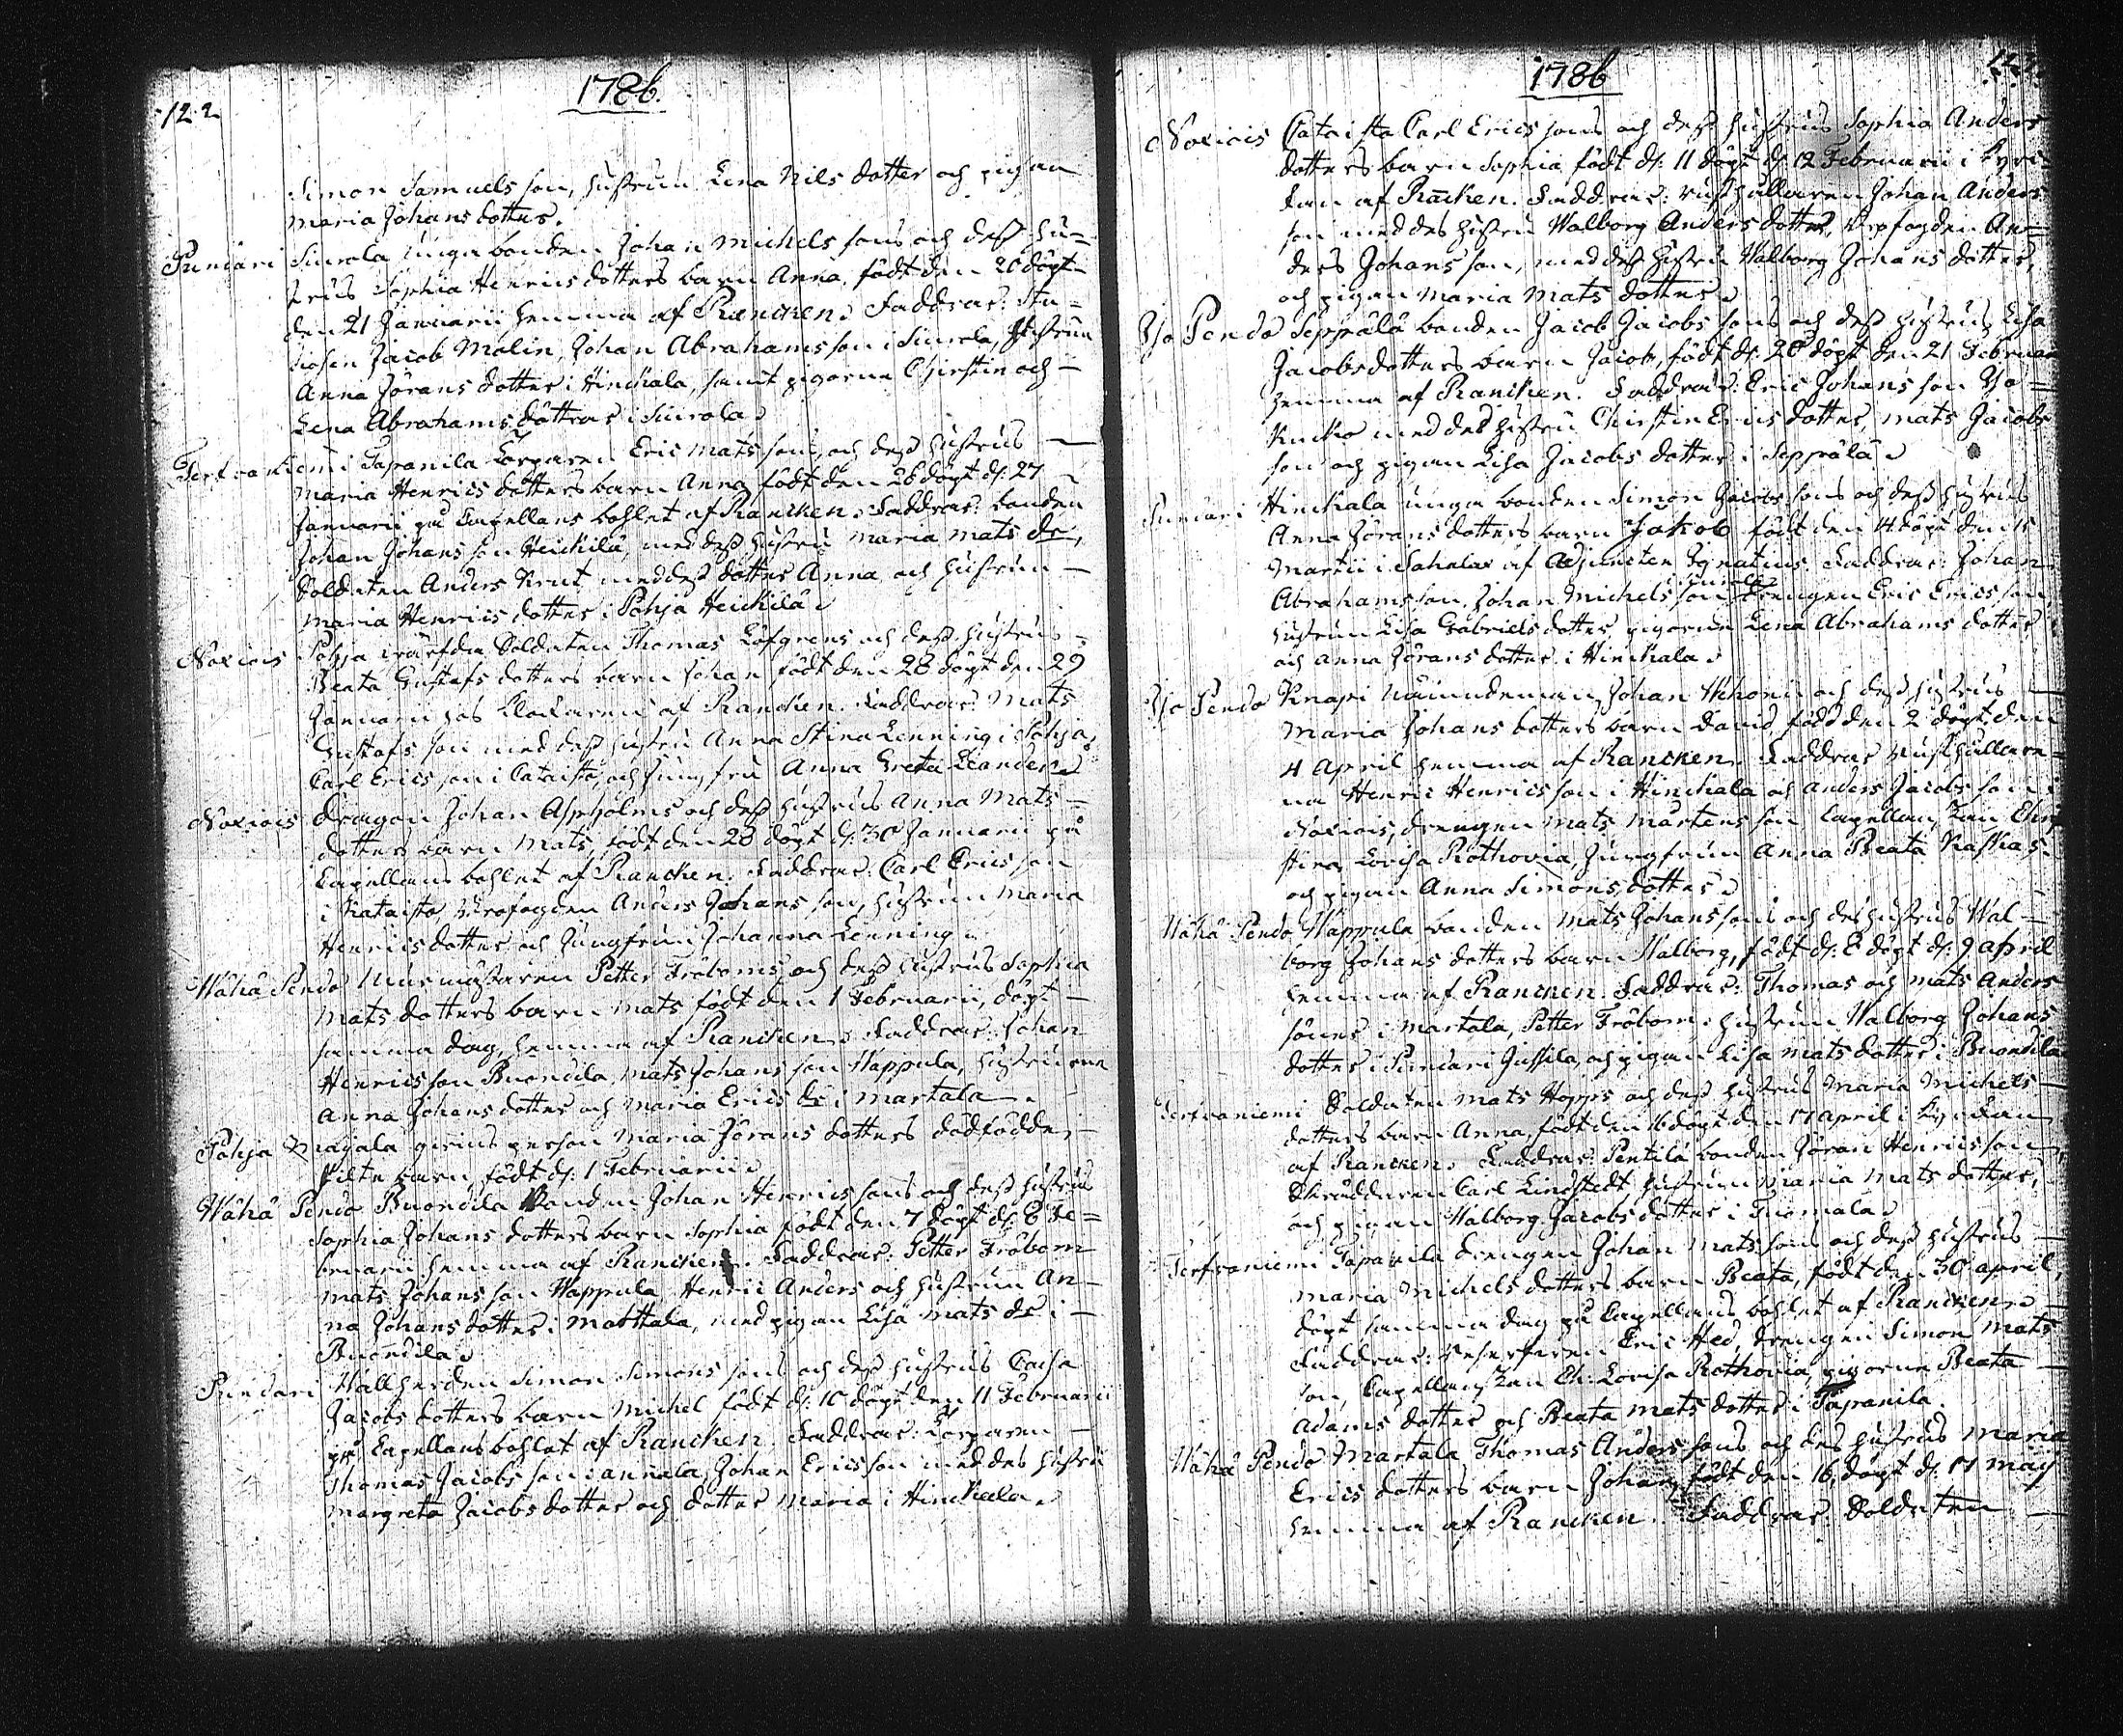 122
1786.
Simon Samuels son, hustrun Lena Nils dotter och pigan
Maria Johans dotter.
Puntari Siurala unga bonden Johan Michels sons och dess hu-
strus Sophia Henrics dotters barn Anna, födt den 20 döpt
den 21 Januarii hemma af Rancken. Faddrar:
Jacob Malin, Johan Abrahams son i Siurala, hustrun
Anna Jörans dotter i Hinckala, samt pigorna Chirstin och
Lena Abrahams döttrar i Siurala.
Terfvaniemi Tapanila Torparen Eric Mats sons, och dess hustrus
Maria Henrics dotters barn Anna födt den 26 döpt d: 27
Januarii på Capellans bohlet af Rancken. Faddrar: bonden
Johan Johans son Heickilä, med dess hustru Maria Mats dr,
Soldaten Anders Krut med dess dotter Anna, och hustrun
Maria Henrics dotter i Pohja Heickilä.
Noxiois Pohja värfda Soldaten Thomas Löfgrens och dess hustrus
Beata Gustafs dotters barn Johan födt den 28 döpt den 29
Januarii hos Klockaren af Rancken. Faddrar: Mats
Gustafs son med dess hustru Anna Stina Lenning i Pohja,
Carl Erics son i Cataisto, och Jungfru Anna Greta Leander.
Noxiois Dragon Johan Aspholms och dess hustrus Anna Mats
dotters barn Mats, födt den 28 döpt d: 30 Januarii på
Capellans bohlet af Rancken. Faddrar: Carl Erics son
i Kataisto, Anders Johans son, hustrun Maria
Henrics dotter och Jungfrun Johanna Lenning.
Wähä Pendo Murmästaren Petter Fröboms och dess hustrus Sophia
Mats dotters barn Mats födt den 1 Februarii, döpt
samma dag, hemma af Rancken. Faddrar: Johan
Henrics son Buondila, Mats Johans son Wappula, hustrurna
Anna Johans dotter och Maria Erics dr i Martala.
Pohja Majala person Maria Jörans dotters dödfödde
barn födt d: 1 Februarii.
Wähä Pendo Buondila Bonden Johan Henrics sons och dess hustrus
Sophia Johans dotters barn Sophia födt den 7 döpt d: 8 Fe-
bruarii hemma af Rancken. Faddrar: Petter Fröbom
Mats Johans son Wappula, Henric Anders och hustrun An-
na Johans dotter i Matttala, med pigan Lisa Mats dr i
Buondila.
Puntari Wallherden Simon Simons sons och dess hustrus Caisa
Jacobs dotters barn Michel födt d: 10 döpt den 11 Februarii
på Capellans bohlet af Rancken. Faddrar: Torparen
Thomas Jacobs son i Annala, Johan Erics son med des hustru
Margreta Jacobs dotter och dotter Maria i Hinckala.
1786
Noxiois Cataisto Carl Erics sons och dess hustrus Sophia Anders
dotters barn Sophia födt d: 11 döpt d: 12 Februarii i Kyrc-
kan af Rancken. Faddrar: rusthållaren Johan Anders
son med des hustru Walborg Anders dotter, An-
ders Johans son, med dess hustru Walborg Johans dotter,
och pigan Maria Mats dotter.
Yso Pendo Seppälä bonden Jacob Jacobs sons och dess hustrus Lisa
Jacobs dotters barn Jacob, födt d: 20 döpt den 21 Februarii
hemma af Rancken. Faddrar: Eric Johans son Yso-
Kucko med des hustru Chirstin Erics dotter, Mats Jacobs
son och pigan Lisa Jacobs dotter i Seppälä.
Puntari Hinckala unga bonden Simon Jacobs sons och dess hustrus
Anna Jörans dotters barn Jakob födt den 14 döpt den 15
Martii i Sahalax af Adjuncten Ignatius. Faddrar: Johan
Abrahams son, Johan Michels son Siurala drengen Eric Erics son,
hustrun Lisa Gabriels dotter, pigorna Lena Abrahams dotter
och Anna Jörans dotter i Hinckala.
Yso Pendo Knapi Nämndeman Johan Ukkoni och dess hustrus
Maria Johans dotters barn David, född den 2 döpt den
4 April hemma af Rancken. Faddrar rusthållare-
na Henric Henrics son i Hinckala och Anders Jacobs son i
Noxiois, drengen Mats Mårtens son Capellanskan Chri
stina Lovisa Rothovia, Jungfrun Anna Beata Raskas
och pigan Anna Simons dotter.
Wähä Pendo Wappula bonden Mats Johans sons och des hustrus Wal-
borg Johans dotters barn Walborg, födt d: 8 döpt d: 9 April
hemma af Rancken. Faddrar: Thomas och Mats Anders
söner i Martala, Petter Fröbom, hustrun Walborg Johans
dotter i Puntari Jussila, och pigan Lisa Mats dotter i Buondila
Terfvaniemi Soldaten Mats Hopps och dess hustrus Maria Michels
dotters barn Anna, födt den 16 döpt den 17 April i Kyrckan
af Rancken. Faddrar: Pentilä bonden Jöran Henrics son,
Skräddaren Carl Lindstedt hustrun Maria Mats dotter,
och pigan Walborg Jacobs dotter i Tuomala.
Terfvaniemi Tapanila drengen Johan Mats sons och dess hustrus
Maria Michels dotters barn Beata, födt den 30 April,
döpt samma dag på Capellans bohlet af Rancken.
Faddrar: Reserfkaren Eric Hed, drengen Simon Mats
son, Capellanskan Ch: Lovisa Rothovia, pigorna Beata
Adams dotter och Beata Mats dotter i Tapanila.
Wähä Pendo Martala Thomas Anders sons och des hustrus Maria
Erics dotters barn Johan, födt den 16, döpt d: 17 Maij
hemma af Rancken. Faddrar: Soldaten